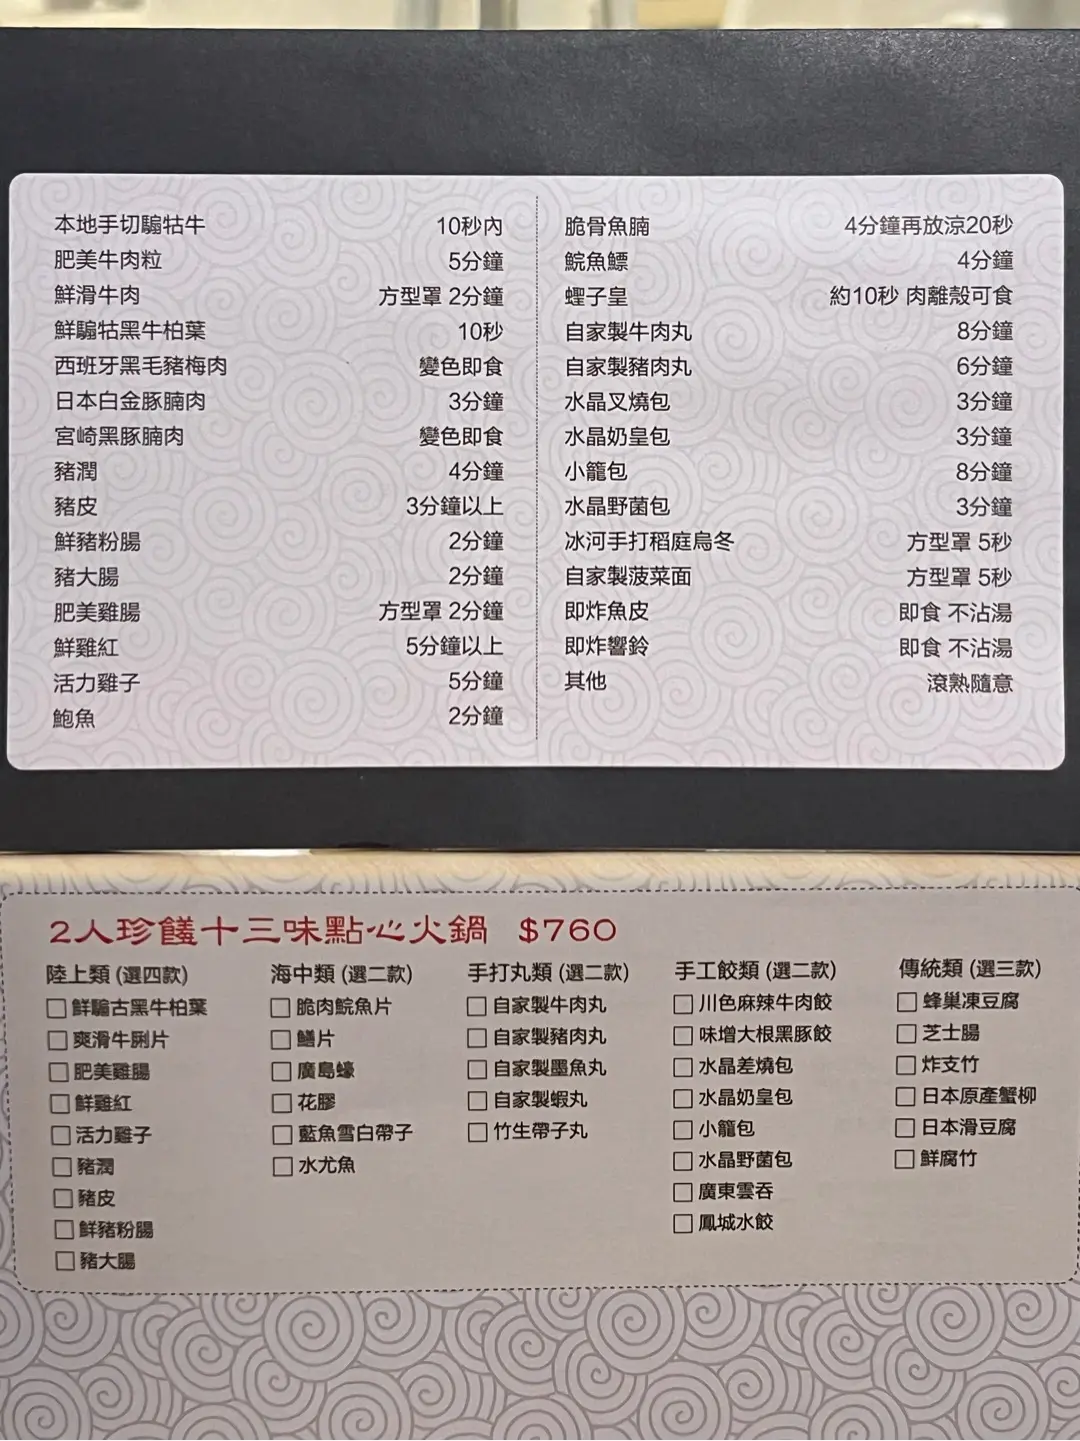 本地手切騸牯牛 10秒內
肥美牛肉粒 5分鐘
鮮滑牛肉 方型罩 2分鐘
鮮騸牯黑牛柏葉 10秒
西班牙黑毛豬梅肉 變色即食
日本白金豚腩肉 3分鐘
宮崎黑豚腩肉 變色即食
豬潤 4分鐘
豬皮 3分鐘以上
鮮豬粉腸 2分鐘
豬大腸 2分鐘
肥美雞腸 方型罩 2分鐘
鮮雞紅 5分鐘以上
活力雞子 5分鐘
鮑魚 2分鐘
脆骨魚腩 4分鐘再放涼20秒
鯇魚鰾 4分鐘
蟶子皇 約10秒 肉離殼可食
自家製牛肉丸 8分鐘
自家製豬肉丸 6分鐘
水晶叉燒包 3分鐘
水晶奶皇包 3分鐘
小籠包 8分鐘
水晶野菌包 3分鐘
冰河手打稻庭烏冬 方型罩 5秒
自家製菠菜面 方型罩 5秒
即炸魚皮 即食 不沾湯
即炸響鈴 即食 不沾湯
其他 滾熟隨意
2人珍饈十三味點心火鍋 $760
陸上類 (選四款)
鮮騸古黑牛柏葉
爽滑牛脷片
肥美雞腸
鮮雞紅
活力雞子
豬潤
豬皮
鮮豬粉腸
豬大腸
海中類 (選二款)
脆肉鯇魚片
鱔片
廣島蠔
花膠
藍魚雪白帶子
水尤魚
手打丸類 (選二款)
自家製牛肉丸
自家製豬肉丸
自家製墨魚丸
自家製蝦丸
竹生帶子丸
手工餃類 (選二款)
川色麻辣牛肉餃
味增大根黑豚餃
水晶差燒包
水晶奶皇包
小籠包
水晶野菌包
廣東雲吞
鳳城水餃
傳統類 (選三款)
蜂巢凍豆腐
芝士腸
炸支竹
日本原產蟹柳
日本滑豆腐
鮮腐竹